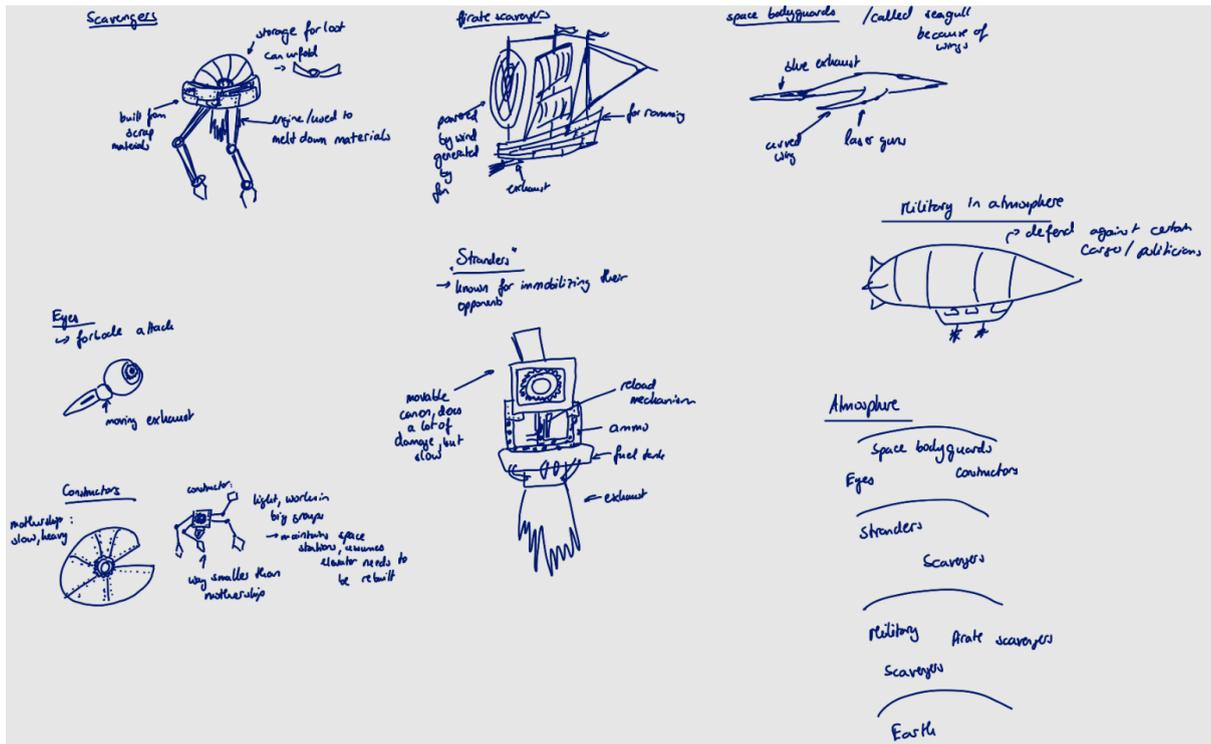 Scavengers
storage for loot
can unfold
→
built from
scrap
materials
engine/used to
melt down materials
Pirate scavengers
powered
by wind
generated
by
fan
for ramming
exhaust
space bodyguards
/called seagull
because of
wings
blue exhaust
curved
wing
laser guns
Military in atmosphere
→ defend against certain
cargo/politicians
"Stranders"
→ known for immobilizing their
opponents
movable
canon, does
a lot of
damage, but
slow
reload
mechanism
ammo
fuel tank
exhaust
Eyes
moving exhaust
Constructors
mothership:
slow, heavy
constructor:
light, works in
big groups
→ maintains space
stations,
elevator needs to
be rebuilt
way smaller than
mothership
Atmosphere
Space bodyguards
Eyes
Constructors
Stranders
Scavengers
Military
Pirate scavengers
Scavengers
Earth